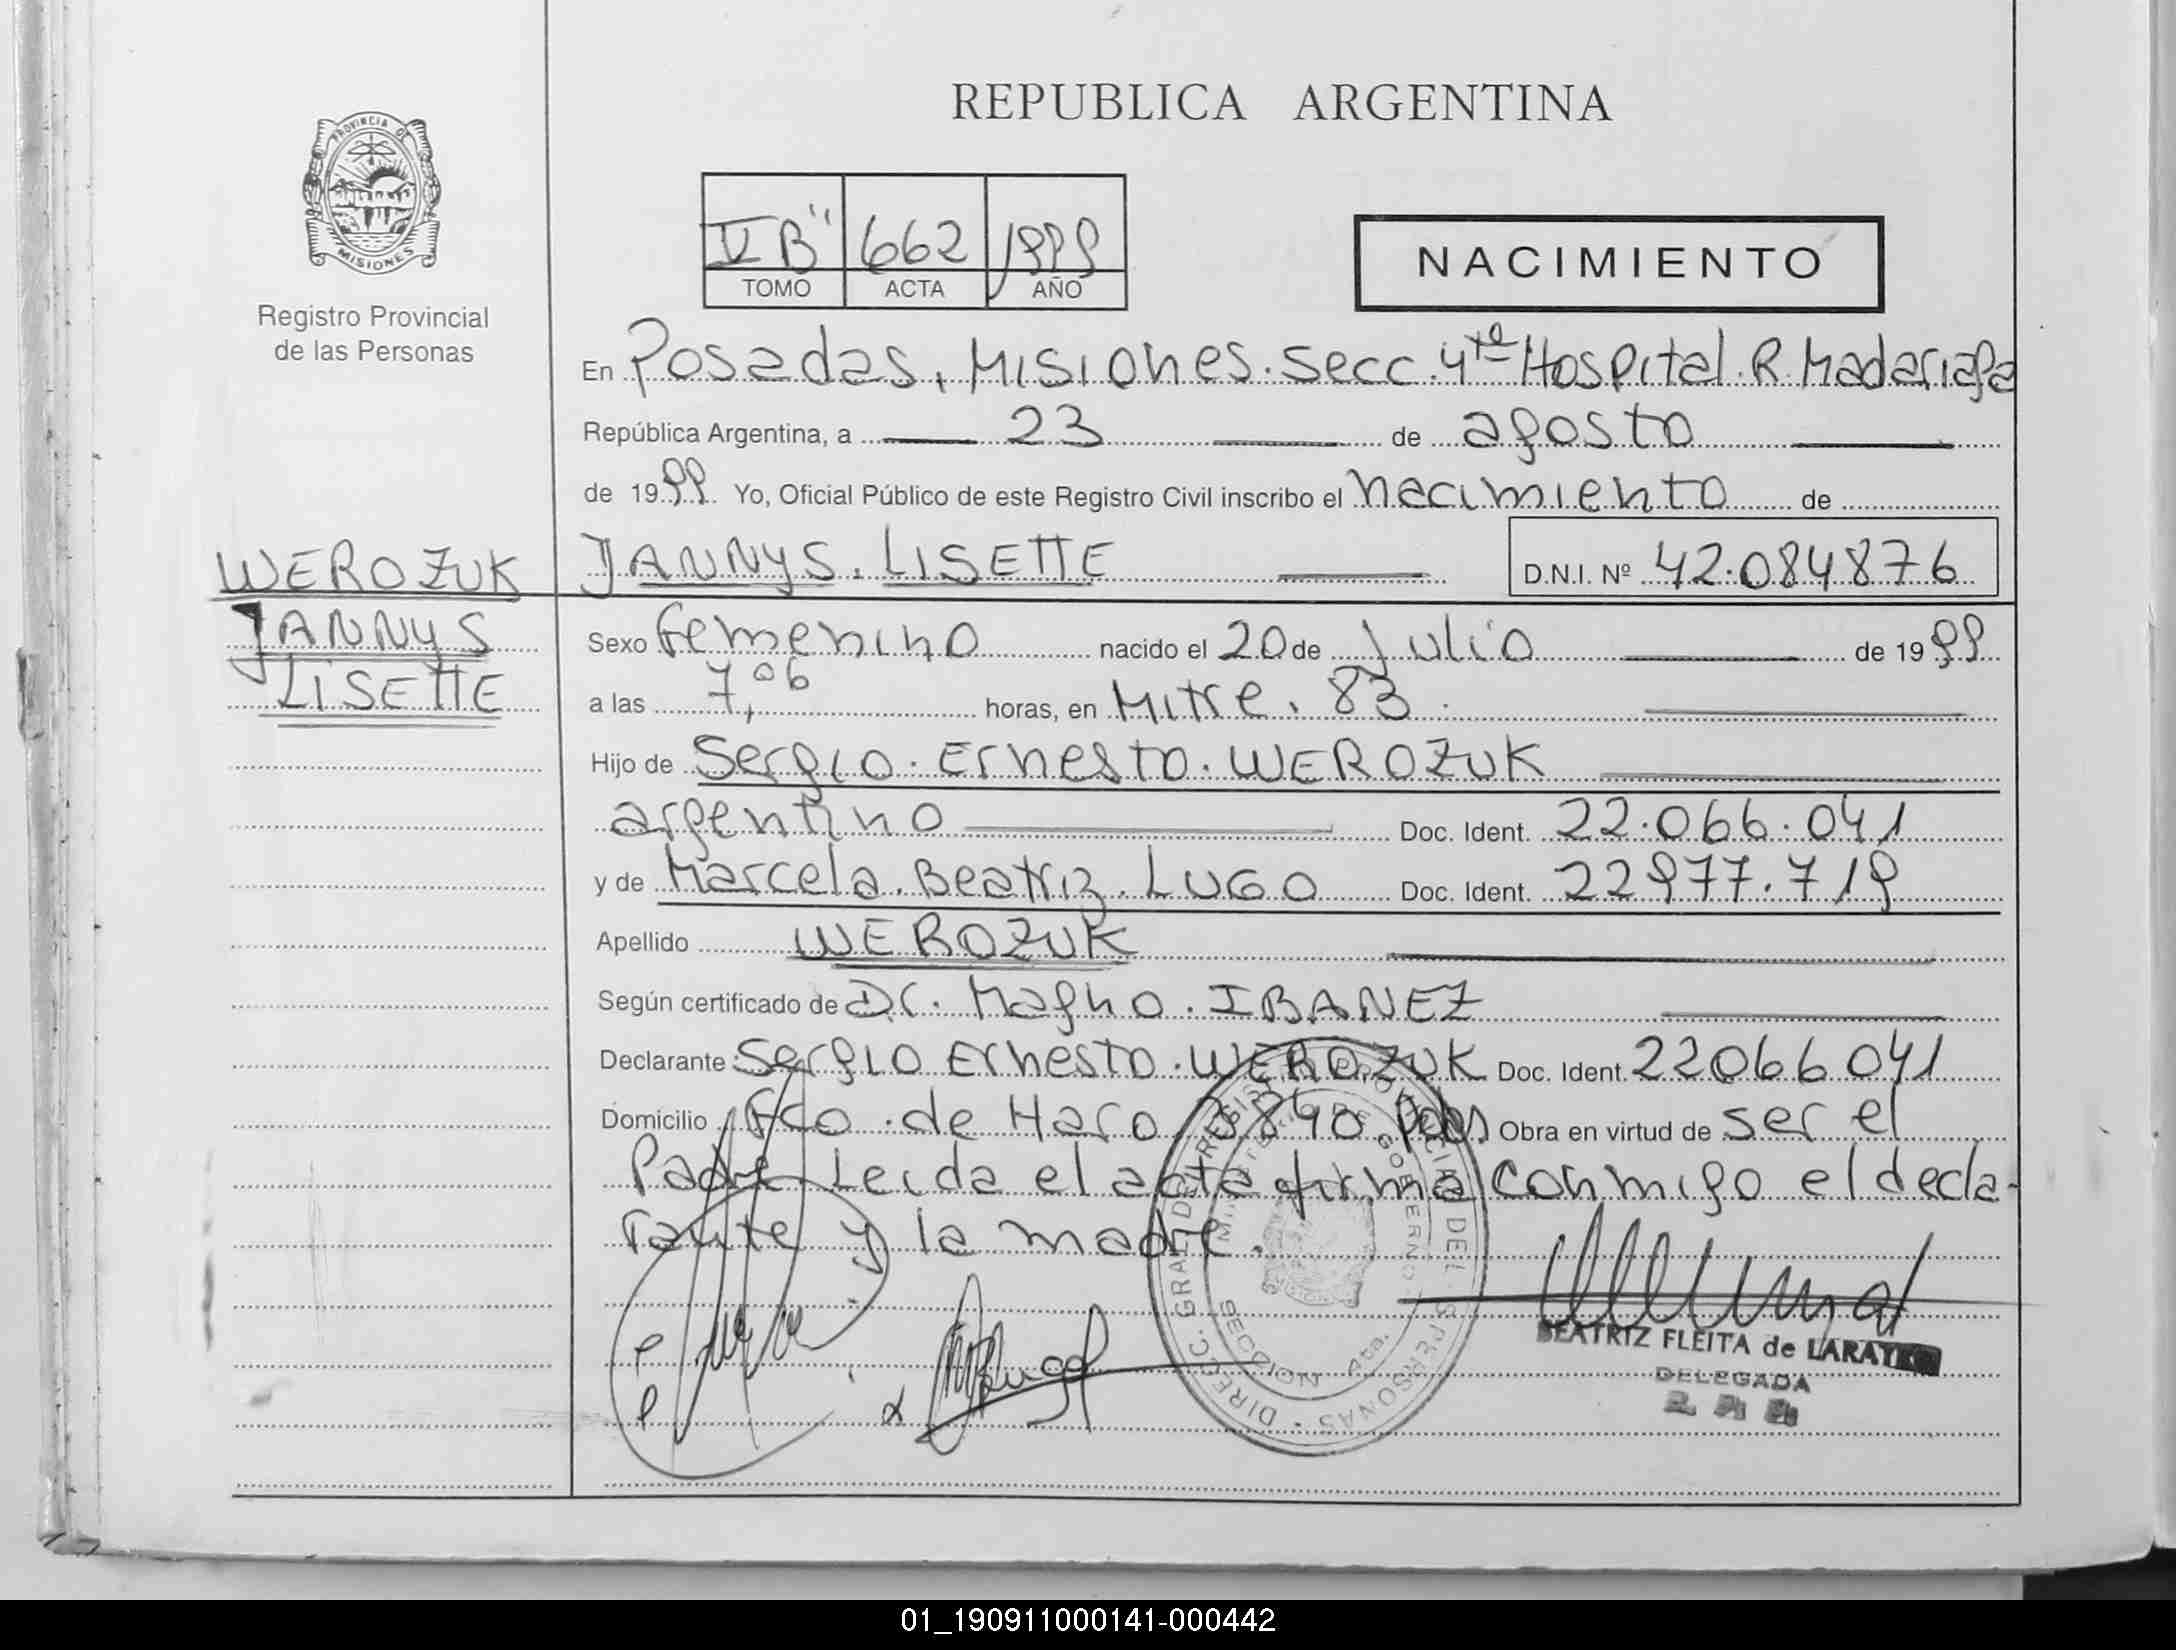 REPUBLICA ARGENTINA
PROVINCIA DE
MISIONES
Registro Provincial
de las Personas
V B" 662 1999
TOMO ACTA AÑO
NACIMIENTO
En Posadas, Misiones. Secc. 4ta Hospital. R. Madariaga
República Argentina, a 23 de agosto
de 1999 Yo, Oficial Público de este Registro Civil inscribo el nacimiento de
WEROZUK JANNYS. LISETTE D.N.I. Nº 42.084876
JANNYS
LISETTE
Sexo femenino nacido el 20 de Julio de 1999
a las 7,06 horas, en Mitre. 83.
Hijo de Sergio. Ernesto. WEROZUK
argentino Doc. Ident. 22.066.041
y de Marcela. Beatriz. LUGO Doc. Ident. 22977.719
Apellido WEROZUK
Según certificado de Dr. Magno. IBANEZ
Declarante Sergio Ernesto. WEROZUK Doc. Ident. 22066041
Domicilio Fco. de Haro 3840 Pdas Obra en virtud de ser el
Padre Leida el acta firma conmigo el decla-
rante y la madre.
DIRECC. GRAL. DEL REGISTRO PROVINCIAL DE LAS PERSONAS
MINISTERIO DE GOBIERNO
SECCION 4ta.
BEATRIZ FLEITA de
DELEGADA
01_190911000141-000442